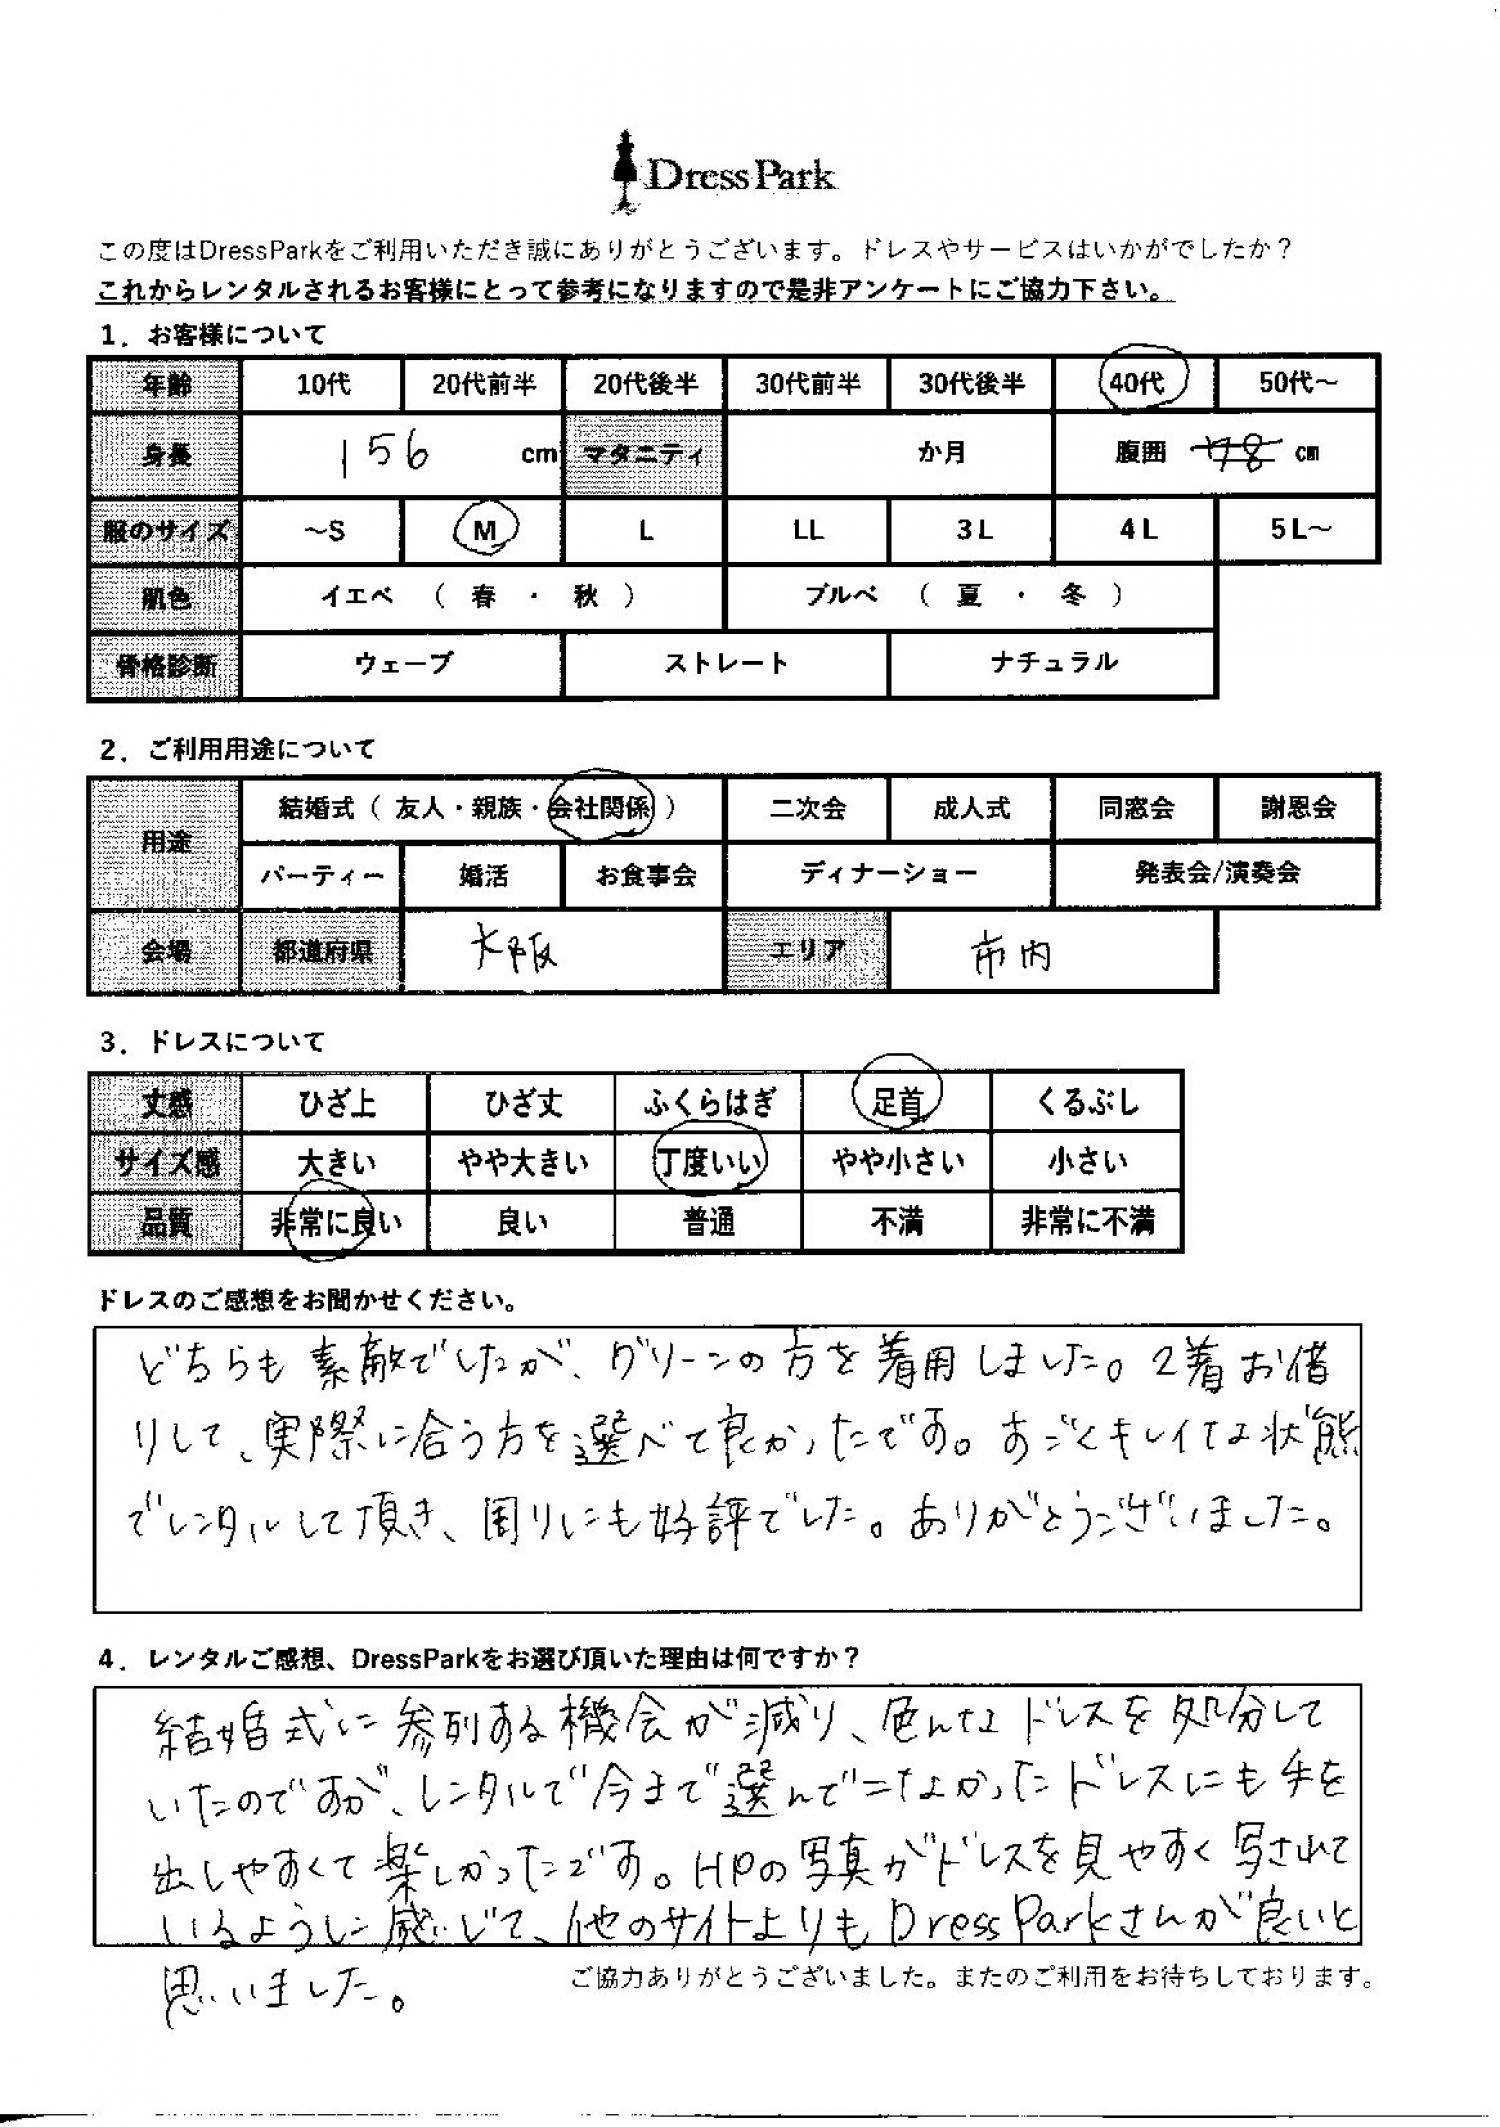 DressPark
この度はDressParkをご利用いただき誠にありがとうございます。ドレスやサービスはいかがでしたか？
これからレンタルされるお客様にとって参考になりますので是非アンケートにご協力下さい。
1．お客様について
年齢 10代 20代前半 20代後半 30代前半 30代後半 40代 50代～
身長 156 cm マタニティ か月 腹囲 78 cm
服のサイズ ～S M L LL 3L 4L 5L～
肌色 イエベ （ 春 ・ 秋 ） ブルベ （ 夏 ・ 冬 ）
骨格診断 ウェーブ ストレート ナチュラル
2．ご利用用途について
用途 結婚式（ 友人・親族・会社関係 ） 二次会 成人式 同窓会 謝恩会
パーティー 婚活 お食事会 ディナーショー 発表会/演奏会
会場 都道府県 大阪 エリア 市内
3．ドレスについて
丈感 ひざ上 ひざ丈 ふくらはぎ 足首 くるぶし
サイズ感 大きい やや大きい 丁度いい やや小さい 小さい
品質 非常に良い 良い 普通 不満 非常に不満
ドレスのご感想をお聞かせください。
どちらも素敵でしたが、グリーンの方を着用しました。2着お借
りして、実際に合う方を選べて良かったです。すごくキレイな状態
でレンタルして頂き、周りにも好評でした。ありがとうございました。
4．レンタルご感想、DressParkをお選び頂いた理由は何ですか？
結婚式に参列する機会が減り、色んなドレスを処分して
いたのですが、レンタルで今まで選んでこなかったドレスにも手を
出しやすくて楽しかったです。HPの写真がドレスを見やすく写されて
いるように感じて、他のサイトよりもDressParkさんが良いと
思いました。
ご協力ありがとうございました。またのご利用をお待ちしております。